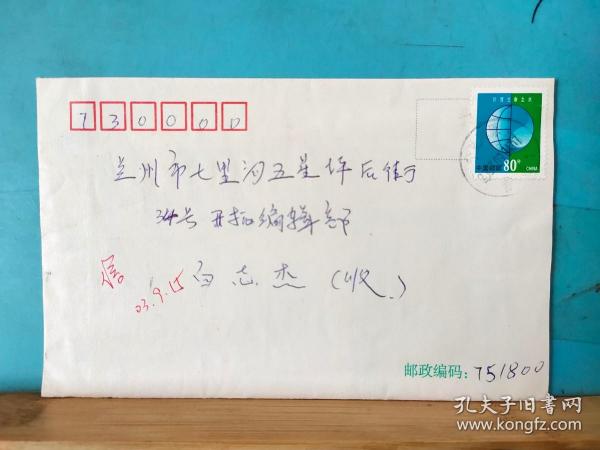 730000
兰州市七里河五星坪后街
34号开拓编辑部
白志杰(收)
信
03.9.15
邮政编码：751800
中国邮政 80分 CHINA
孔夫子旧书网
www.kongfz.com